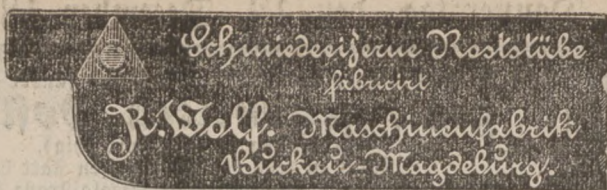 Schmiedeeiserne Roststäbe
fabricirt
R. Wolf. Maschinenfabrik
Buckau-Magdeburg.